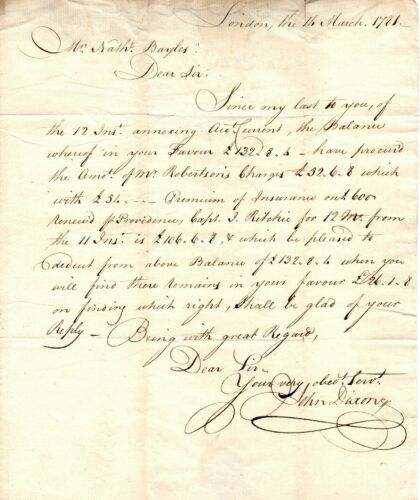 London, the 14 March. 1781.
Mr. Nathl. Bayles.
Dear Sir.
Since my last to you, of
the 12 Inst. annexing Acct. Current, the Balance
whereof in your Favour £132.8.4 – have procured
the Amot. of Mr. Robertson's Charges £32.6.8 which
with £34. .– – Premium of Insurance on £600
renewd p Providence, Capt. J. Ritchie for 12 Mo. from
the 11 Inst. is £106.6.8, & which be pleased to
deduct from above Balance of £132.8.4 when you
will find there remains in your favour £26.1.8
on finding which right, shall be glad of your
Reply – Being with great Regard,
Dear Sir –
Your very obedt. Servt.
John Dixon